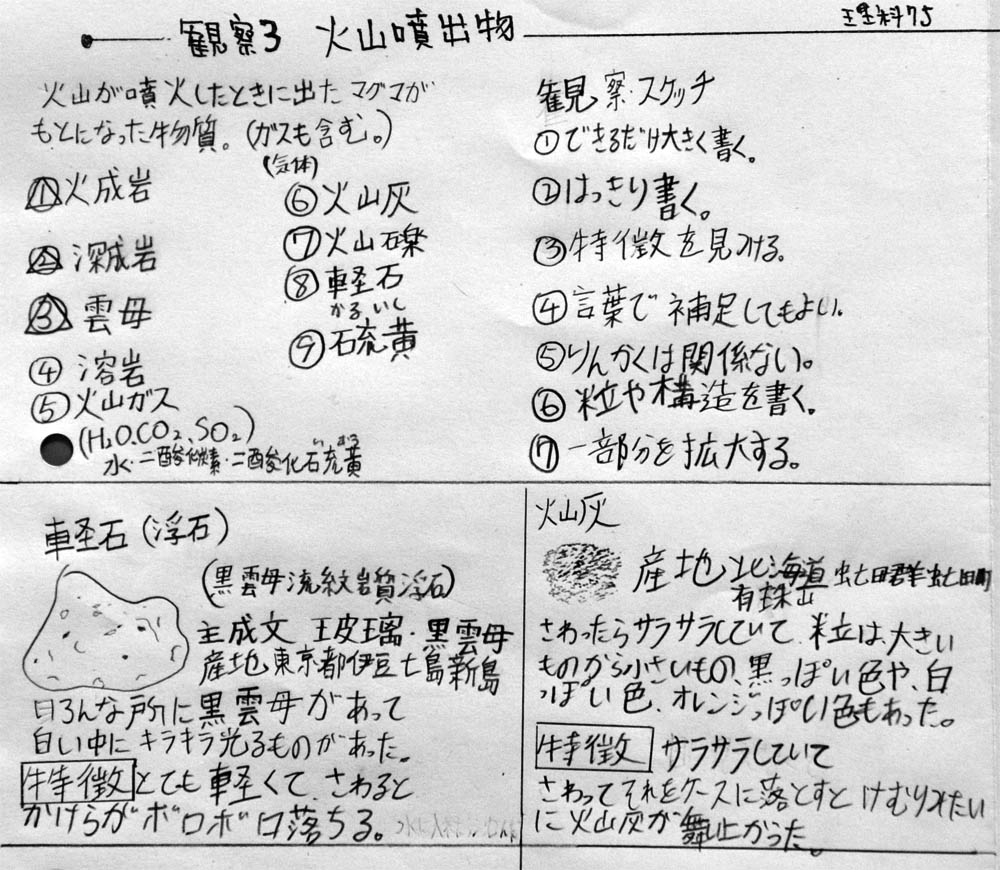 理科75
観察3 火山噴出物
火山が噴火したときに出たマグマが
もとになった物質。(ガスも含む。)
(気体)
①火成岩
②深成岩
③雲母
④溶岩
⑤火山ガス
(H₂O.CO₂、SO₂)
水・二酸炭素・二酸化硫黄
いおう
⑥火山灰
⑦火山礫
⑧軽石
かるいし
⑨硫黄
観察・スケッチ
①できるだけ大きく書く。
②はっきり書く。
③特徴を見つける。
④言葉で補足してもよい。
⑤りんかくは関係ない。
⑥粒や構造を書く。
⑦一部分を拡大する。
軽石(浮石)
(黒雲母流紋岩質浮石)
主成文 玻璃・黒雲母
産地 東京都伊豆七島新島
白ろんな所に黒雲母があって
白い中にキラキラ光るものがあった。
特徴 とても軽くて、さわると
かけらがボロボロ落ちる。
火山灰
産地 北海道虻田郡虻田町
有珠山
さわったらサラサラしていて、粒は大きい
ものから小さいもの、黒っぽい色や、白
っぽい色、オレンジっぽい色もあった。
特徴 サラサラしていて
さわってそれをケースに落とすとけむりみたい
に火山灰が舞い上がった。